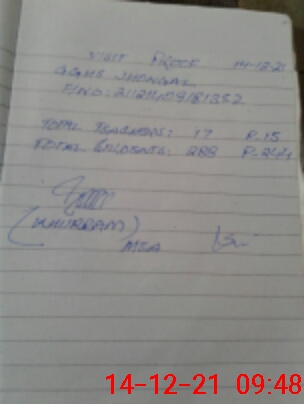 VISIT PROOF 14-12-21
GGHS JHONGAL
TOTAL TEACHERS: 17 P-15
TOTAL STUDENTS: 288
(KHURRAM)
MEA
14-12-21 09:48